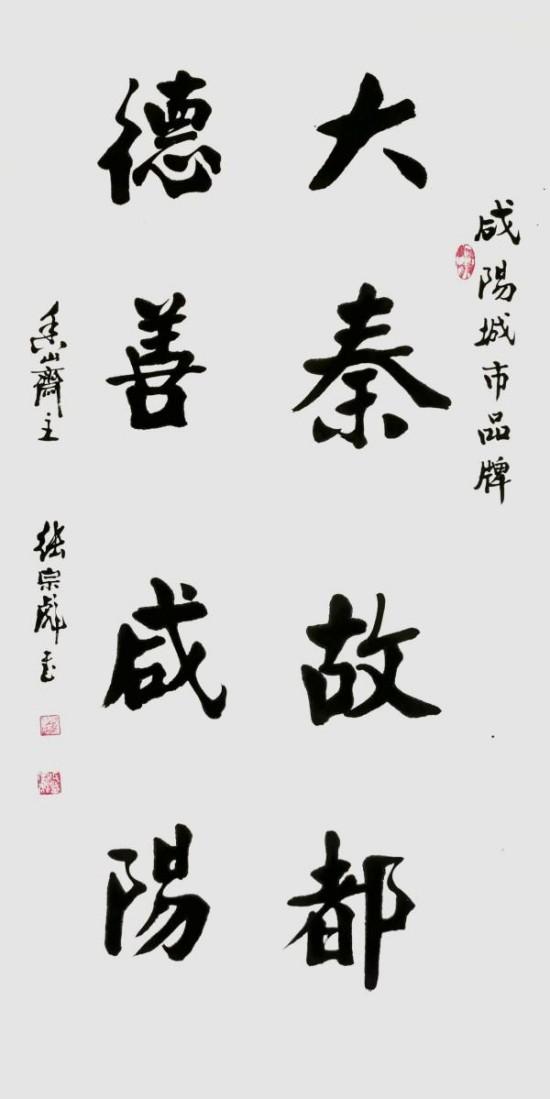 咸陽城市品牌
大秦故都
德善咸陽
香山齋主
張宗彪書